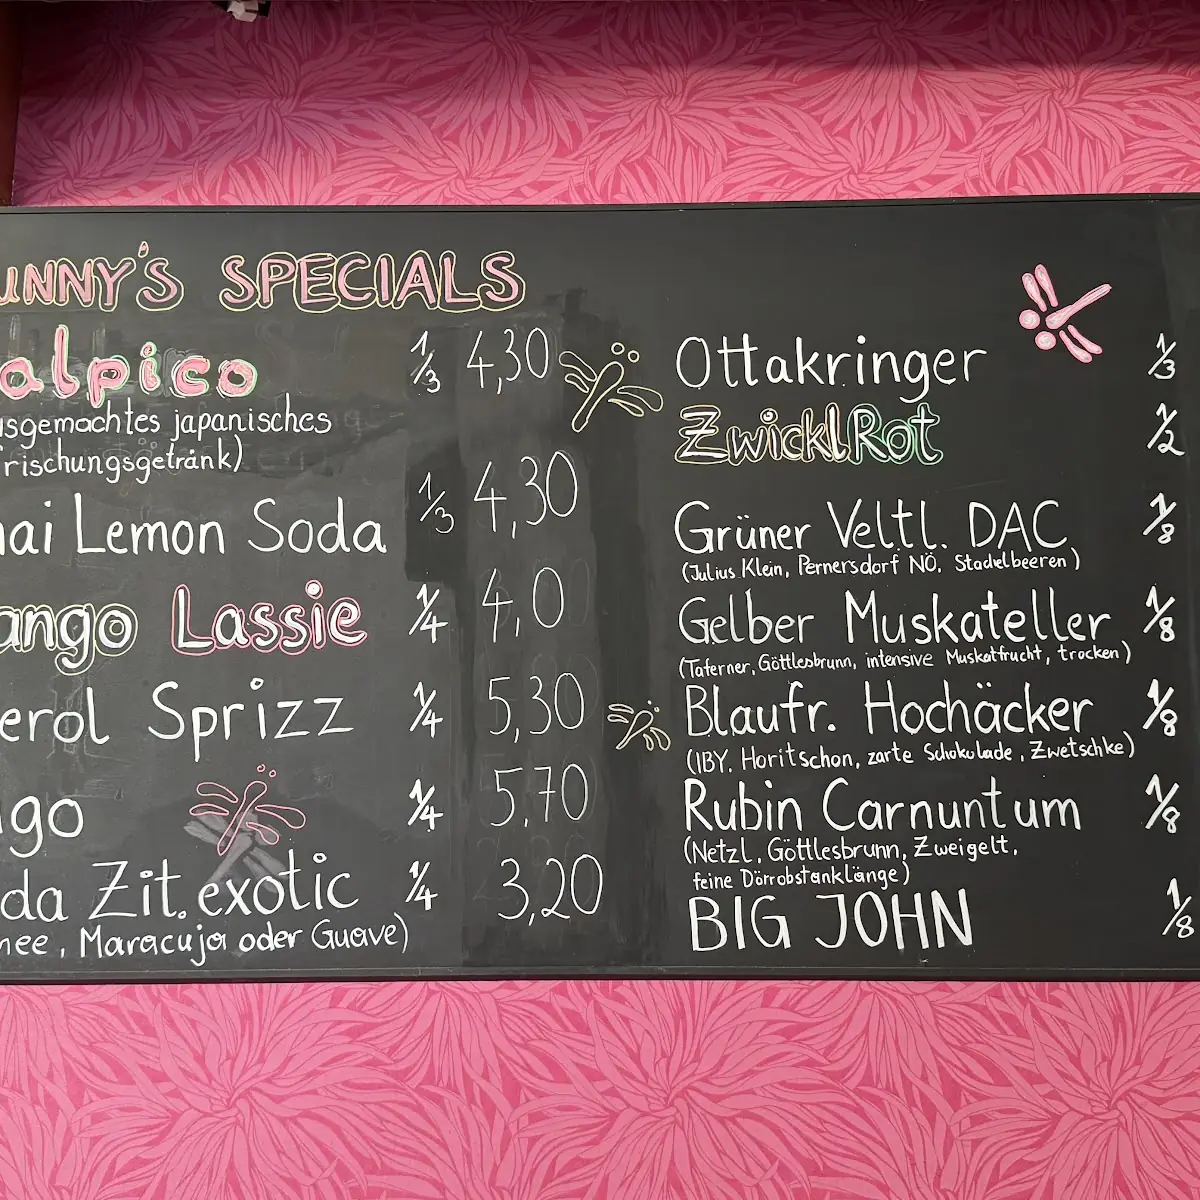 UNNY'S SPECIALS
alpico 1/3 4,30
usgemachtes japanisches
frischungsgetränk)
hai Lemon Soda 1/3 4,30
ango Lassie 1/4 4,0
erol Sprizz 1/4 5,30
go 1/4 5,70
da Zit. exotic 1/4 3,20
hee, Maracuja oder Guave)
Ottakringer 1/3
Zwickl Rot 1/2
Grüner Veltl. DAC 1/8
(Julius Klein, Pernersdorf NÖ, Stachelbeeren)
Gelber Muskateller 1/8
(Taferner, Göttlesbrunn, intensive Muskatfrucht, trocken)
Blaufr. Hochäcker 1/8
(IBY, Horitschon, zarte Schokolade, Zwetschke)
Rubin Carnuntum 1/8
(Netzl, Göttlesbrunn, Zweigelt,
feine Dörrobstanklänge)
BIG JOHN 1/8